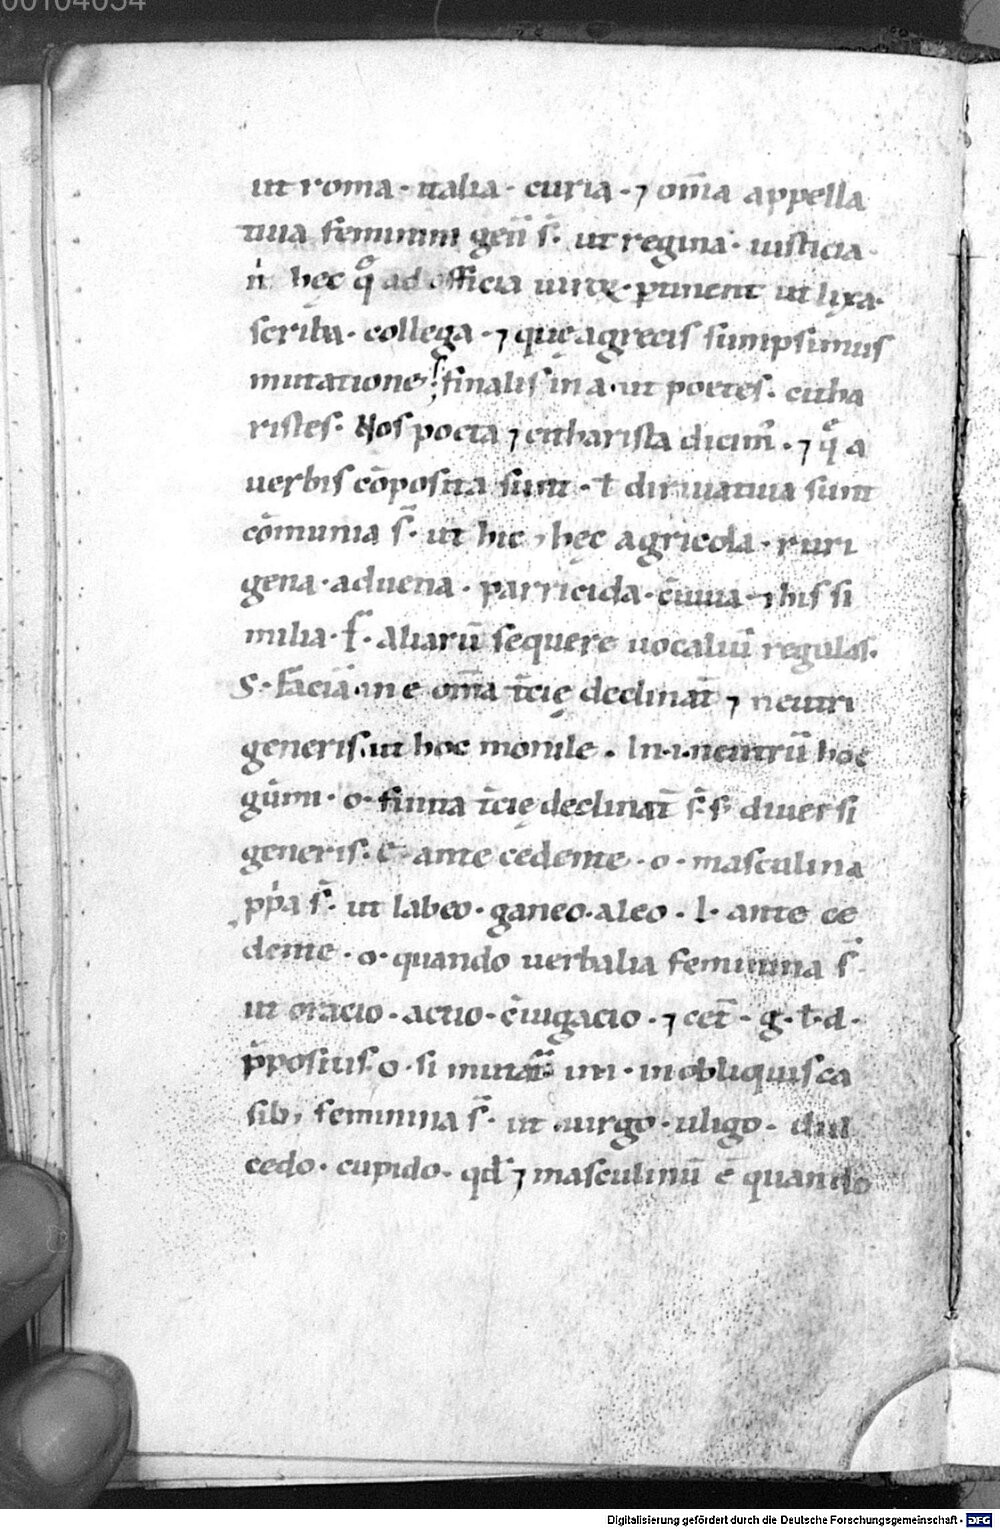 00104054
ut roma · italia · curia · ⁊ om̄a appella
tiua feminini gen̄i s̄· ut regina · iusticia ·
n̓ hęc q̊ ad officia uiroꝝ · ꝑtinent ut lixa ·
scriba · collega · ⁊ quę agrecis sumpsimus
mutatione finalis in a · ut poetes · citha
ristes · Nos poeta ⁊ citharista dicim̓ · ⁊ q̊ a
uerbis cōposita sunt · ł diriuatiua sunt
cōmunia s̄· ut hic, hęc agricola · ruri
gena · aduena · parricida · ⁊ his si
milia · s̄· Aliarū sequere uocaliū regulas ·
S · in e om̄a t̄cię declinat̄ ⁊ neutri
generis · ut hoc monile · In · i · neutrū hoc
gūmi · o · finita t̄cię declinat̄ s · s̄ diuersi
generis · e · ante cedente · o · masculina
pp̓a s̄· ut labeo · ganeo · aleo · I · ante ce
dente · o · quando uerbalia feminina s̄·
ut oracio · actio · c̄iugacio · ⁊ cet̄ · g · ł · d ·
p̓positis · o · si in · in obliquis ca
sib, feminina s̄· ut uirgo · uligo · dul
cedo · cupido · qd̄ ⁊ masculinū ē quando
Digitalisierung gefördert durch die Deutsche Forschungsgemeinschaft - DFG